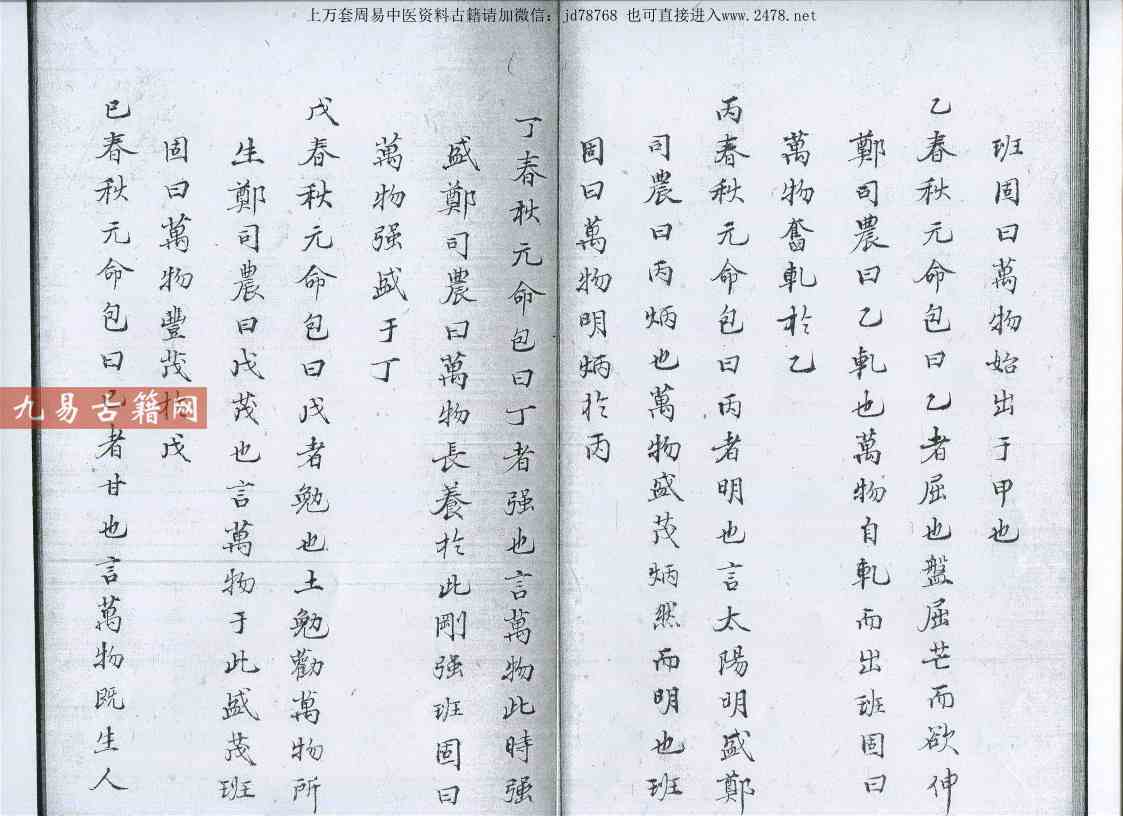 上万套周易中医资料古籍请加微信：jd78768 也可直接进入www.2478.net
班固曰萬物始出于甲也
乙春秋元命包曰乙者屈也盤屈芒而欲伸
鄭司農曰乙軋也萬物自軋而出班固曰
萬物奮軋於乙
丙春秋元命包曰丙者明也言太陽明盛鄭
司農曰丙炳也萬物盛茂炳然而明也班
固曰萬物明炳於丙
丁春秋元命包曰丁者强也言萬物此時强
盛鄭司農曰萬物長養於此剛强班固曰
萬物强盛于丁
戊春秋元命包曰戊者勉也土勉勸萬物所
生鄭司農曰戊茂也言萬物于此盛茂班
固曰萬物豐茂於戊
已春秋元命包曰己者甘也言萬物既生人
九易古籍网